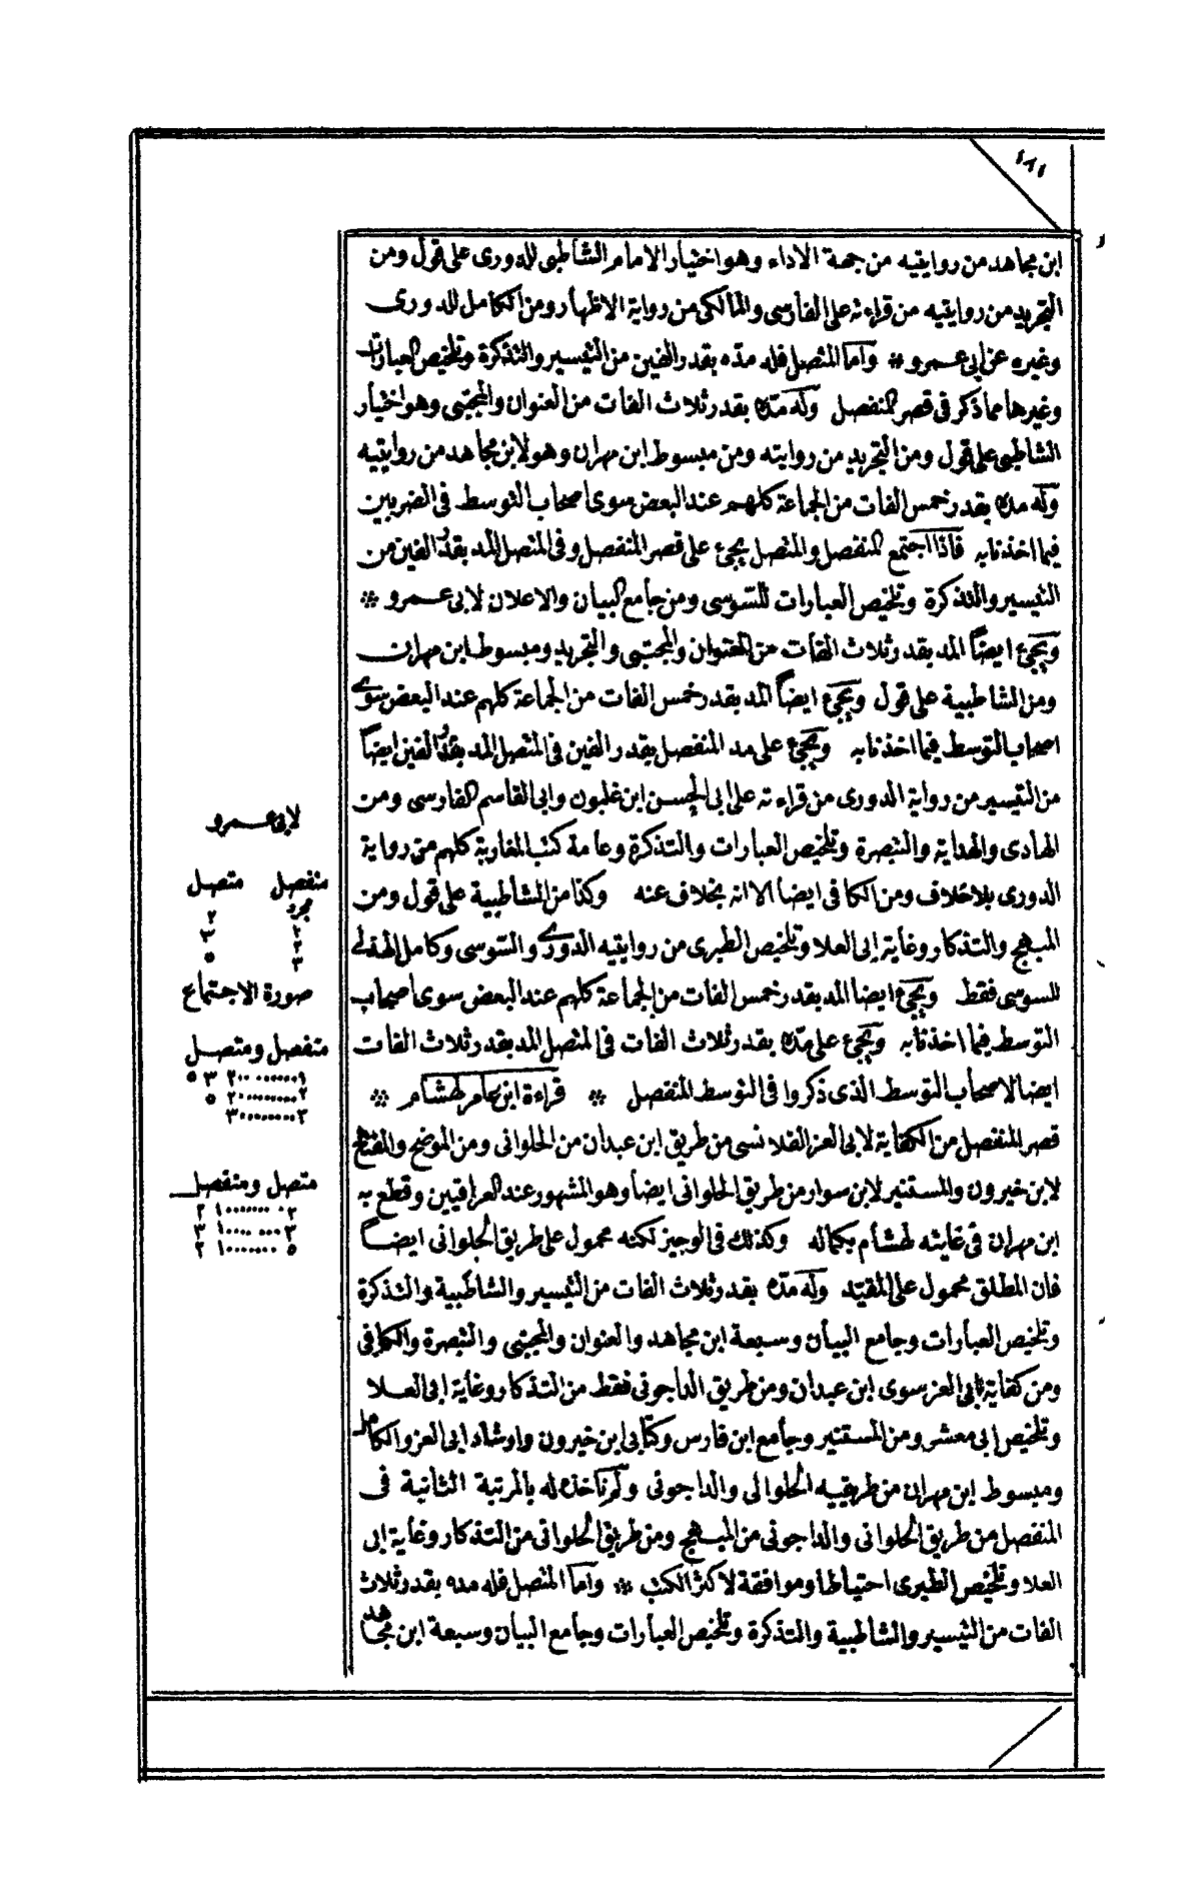 ١٨١
ابن مجاهد من روايتيه من جهة الاداء وهو اختيار الامام الشاطبى للدورى على قول ومن
التجريد من روايتيه من قراءته على الفارسى والمالكى من رواية الاظهار ومن الكامل للدورى
وغيره عن ابى عمرو ۞ واما المتصل فله مده بقدر الفين من التيسير والتذكرة وتلخيص العبارات
وغيرها مما ذكر فى قصر المنفصل وله مده بقدر ثلاث الفات من العنوان والمجتبى وهو اختيار
الشاطبى على قول ومن التجريد من روايته ومن مبسوط ابن مهران وهو لابن مجاهد من روايتيه
وله مده بقدر خمس الفات من الجماعة كلهم عند البعض سوى اصحاب التوسط فى الضربين
فيما اخذنا به فاذا اجتمع المنفصل والمتصل يجئ على قصر المنفصل وفى المتصل المد بقدر الفين من
التيسير والتذكرة وتلخيص العبارات للسوسى ومن جامع البيان والاعلان لابى عمرو ۞
ويجئ ايضا المد بقدر ثلاث الفات من العنوان والمجتبى والتجريد ومبسوط ابن مهران
ومن الشاطبية على قول ويجئ ايضا المد بقدر خمس الفات من الجماعة كلهم عند البعض سوى
اصحاب التوسط فيما اخذنا به ويجئ على مد المنفصل بقدر الفين فى المتصل المد بقدر الفين ايضا
من التيسير من رواية الدورى من قراءته على ابى الحسن ابن غلبون وابى القاسم الفارسى ومن
الهادى والهداية والتبصرة وتلخيص العبارات والتذكرة وعامة كتب المغاربة كلهم من رواية
الدورى بلا خلاف ومن الكافى ايضا الا انه بخلاف عنه وكذا من الشاطبية على قول ومن
المبهج والتذكار وغاية ابى العلا وتلخيص الطبرى من روايتيه الدورى والسوسى وكامل الهذلى
للسوسى فقط ويجئ ايضا المد بقدر خمس الفات من الجماعة كلهم عند البعض سوى اصحاب
التوسط فيما اخذنا به ويجئ على مده بقدر ثلاث الفات فى المتصل المد بقدر ثلاث الفات
ايضا لاصحاب التوسط الذى ذكروا فى التوسط المنفصل ۞ قراءة ابن عامر لهشام ۞
قصر المنفصل من الكفاية لابى العز القلانسى من طريق ابن عبدان من الحلوانى ومن الموضح والمفتاح
لابن خيرون والمستنير لابن سوار من طريق الحلوانى ايضا وهو المشهور عند العراقيين وقطع به
ابن مهران فى غايته لهشام بكماله وكذلك فى الوجيز لكنه محمول على طريق الحلوانى ايضا
فان المطلق محمول على المقيد وله مده بقدر ثلاث الفات من التيسير والشاطبية والتذكرة
وتلخيص العبارات وجامع البيان وسبعة ابن مجاهد والعنوان والمجتبى والتبصرة والكافى
ومن كفاية ابى العز سوى ابن عبدان ومن طريق الداجونى فقط من التذكار وغاية ابى العلا
وتلخيص ابى معشر ومن المستنير وجامع ابن فارس وكتابى ابن خيرون وارشاد ابى العز والكامل
ومبسوط ابن مهران من طريقيه الحلوانى والداجونى ولم نأخذ له بالمرتبة الثانية فى
المنفصل من طريق الحلوانى والداجونى من المبهج ومن طريق الحلوانى من التذكار وغاية ابى
العلا وتلخيص الطبرى احتياطا وموافقة لاكثر الكتب ۞ واما المتصل فله مده بقدر ثلاث
الفات من التيسير والشاطبية والتذكرة وتلخيص العبارات وجامع البيان وسبعة ابن مجاهد
لابى عمرو
منفصل متصل
مجرد ٢
٢ ٣
٣ ٥
صورة الاجتماع
منفصل ومتصل
١ ........ ٢ ٣ ٥
٢ .......... ٢ ٥
٣ ......... ٣
متصل ومنفصل
٢ ........ ١ ٢
٣ ........ ١ ٣
٥ ........ ١ ٢